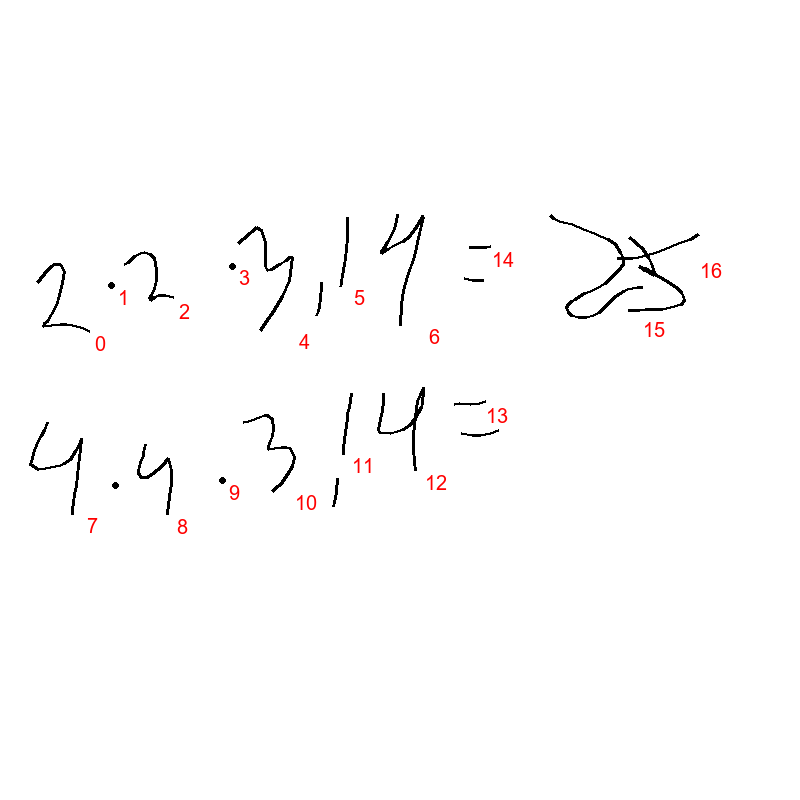 2 · 2 · 3,14 = 25
0 1 2 3 4 5 6 14 15 16
4 · 4 · 3,14 =
7 8 9 10 11 12 13